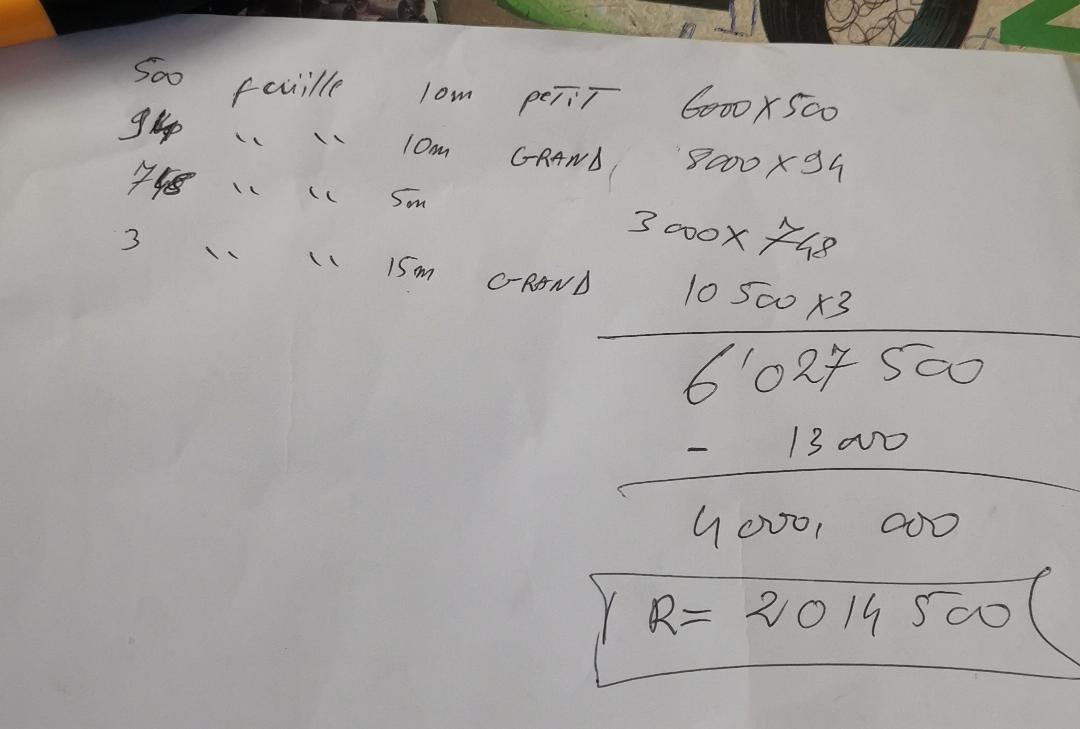 500 feuille 10m PETIT 6000 X 500
94 " " 10m GRAND 8000 X 94
748 " " 5m 3000 X 748
3 " " 15m GRAND 10 500 X 3
6'027 500
- 13 000
4 000, 000
R = 2 014 500